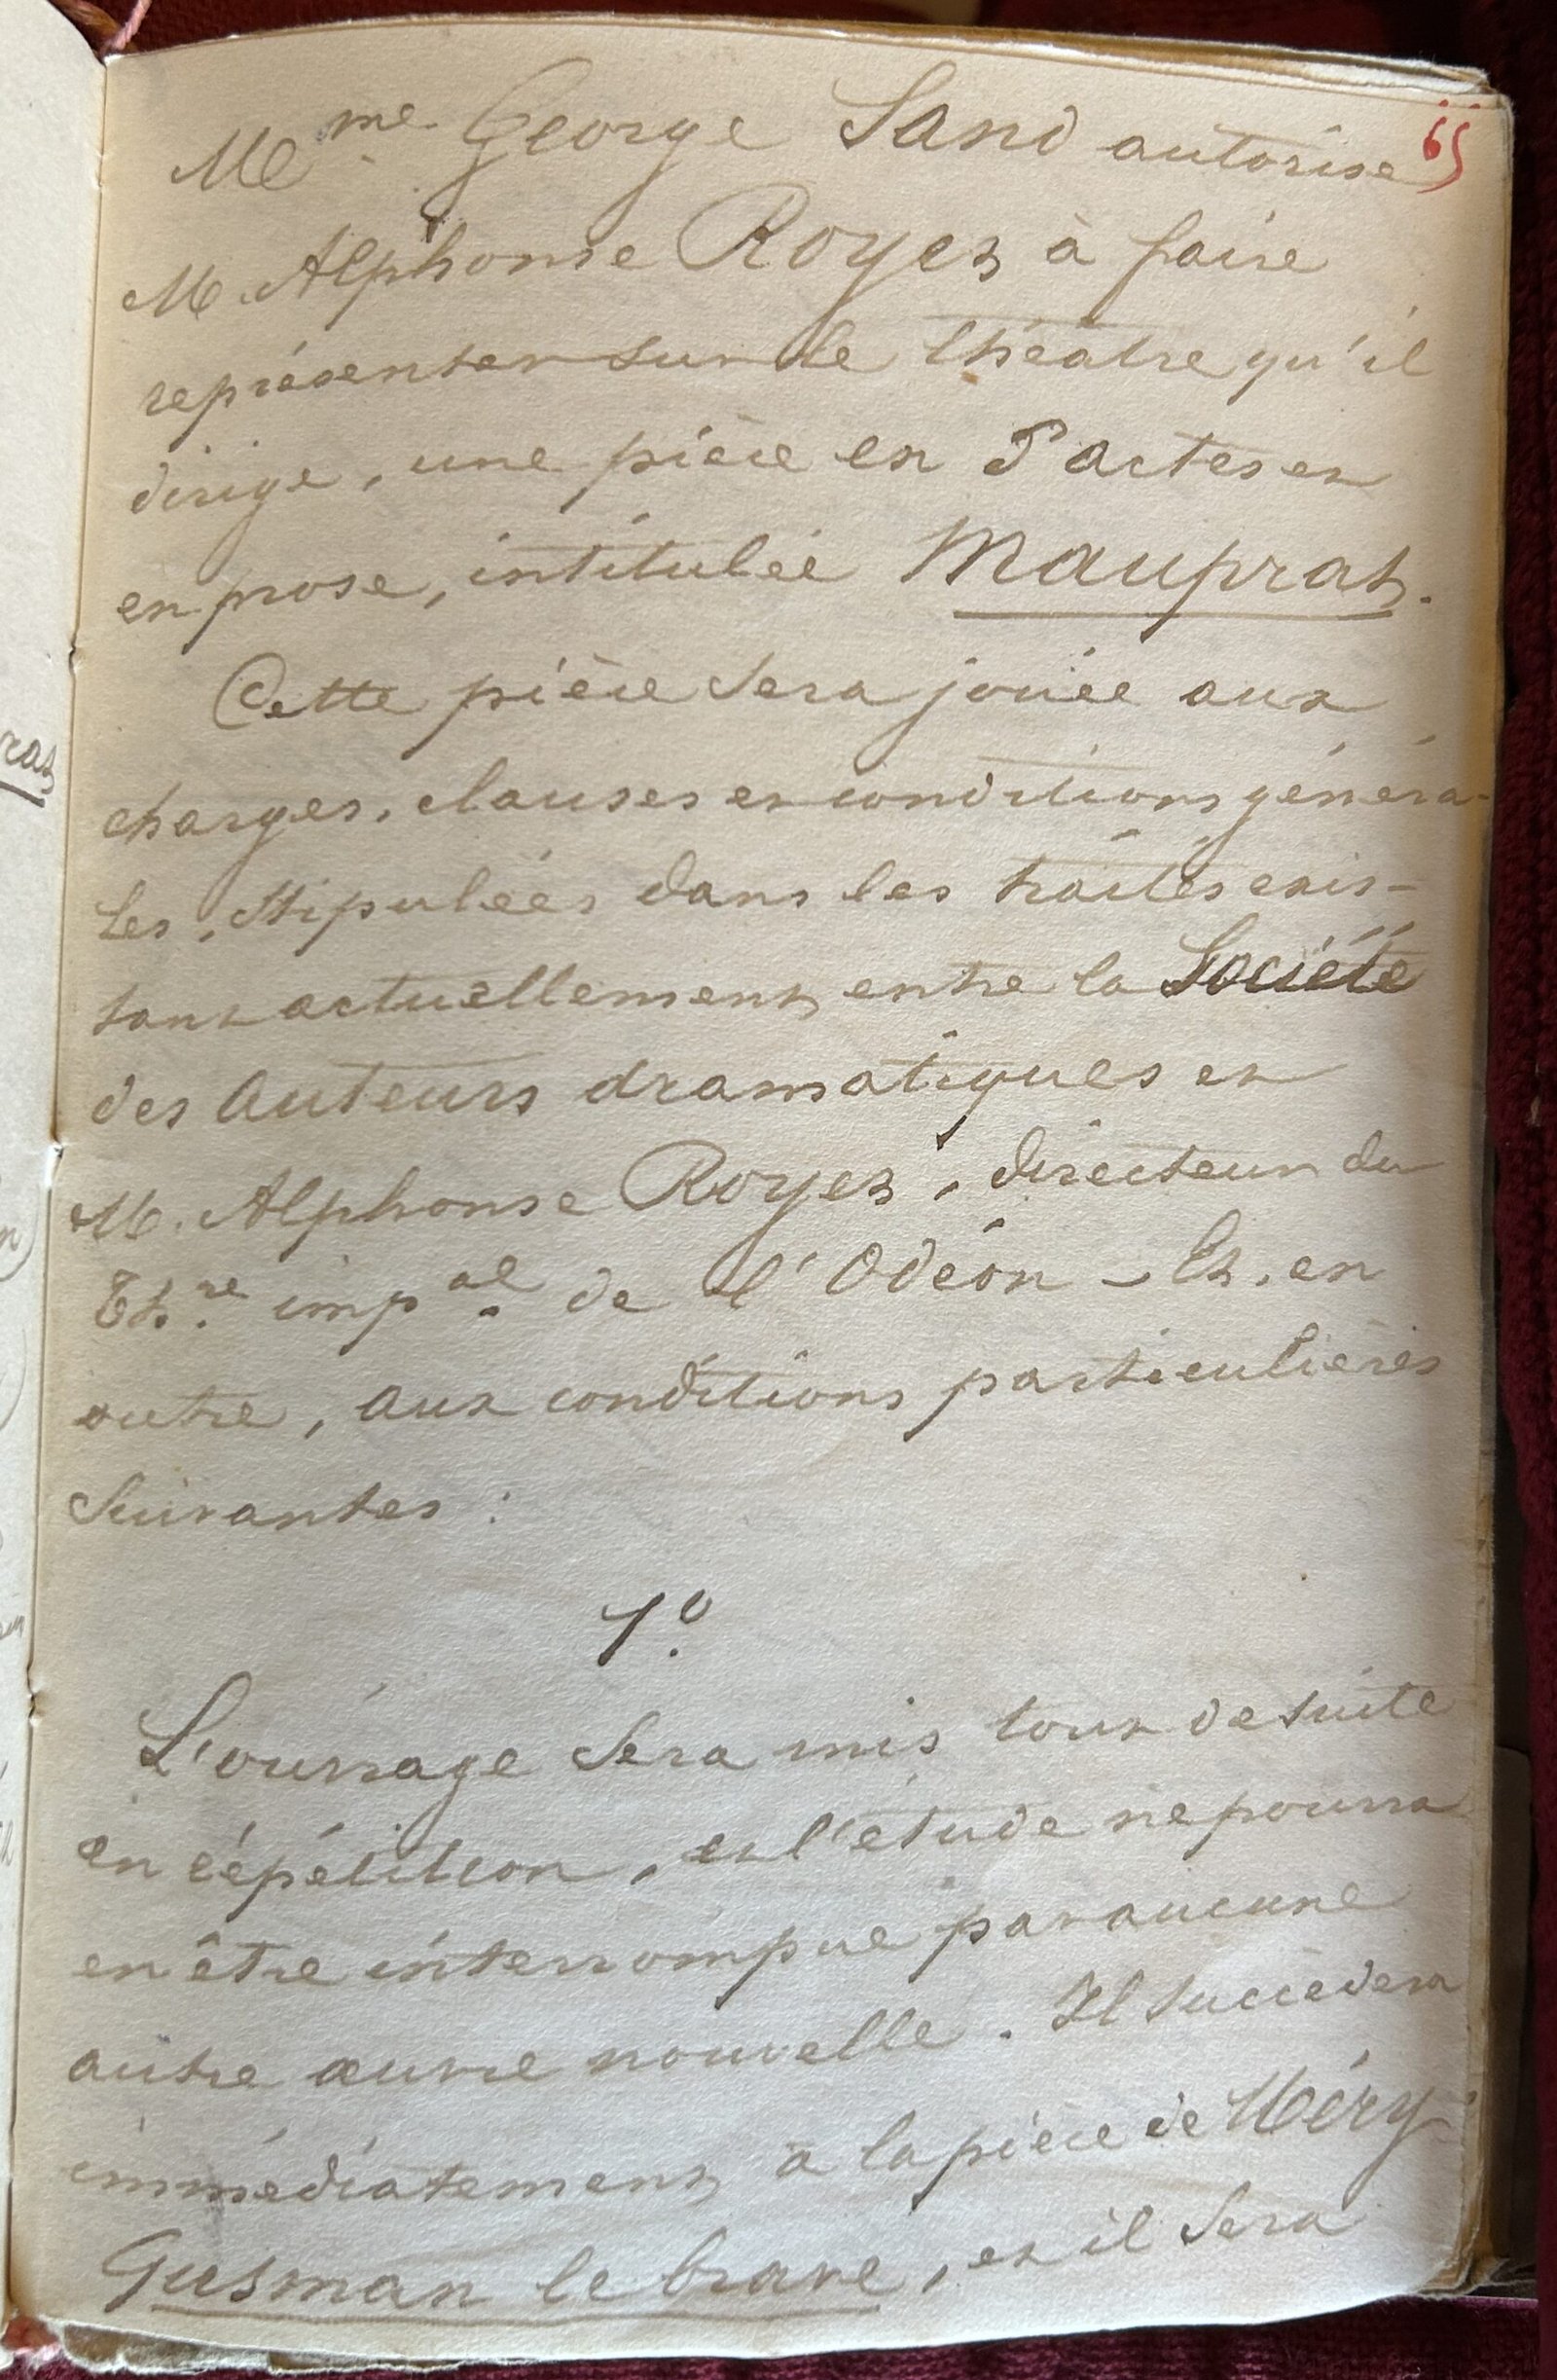 65
Mme George Sand autorise
M. Alphonse Royer à faire
représenter sur le théâtre qu'il
dirige, une pièce en 5 actes et
en prose, intitulée Mauprat.
Cette pièce sera jouée aux
charges, clauses et conditions généra-
les, stipulées dans les traités exis-
tant actuellement entre la Société
des Auteurs dramatiques et
M. Alphonse Royer, directeur du
Thre. impal. de l'Odéon - Et, en
outre, aux conditions particulières
suivantes :
1º
L'ouvrage sera mis tout de suite
en répétition, et l'étude ne pourra
en être interrompue par aucune
autre œuvre nouvelle. Il succèdera
immédiatement à la pièce de Méry
Gusman le brave, et il sera